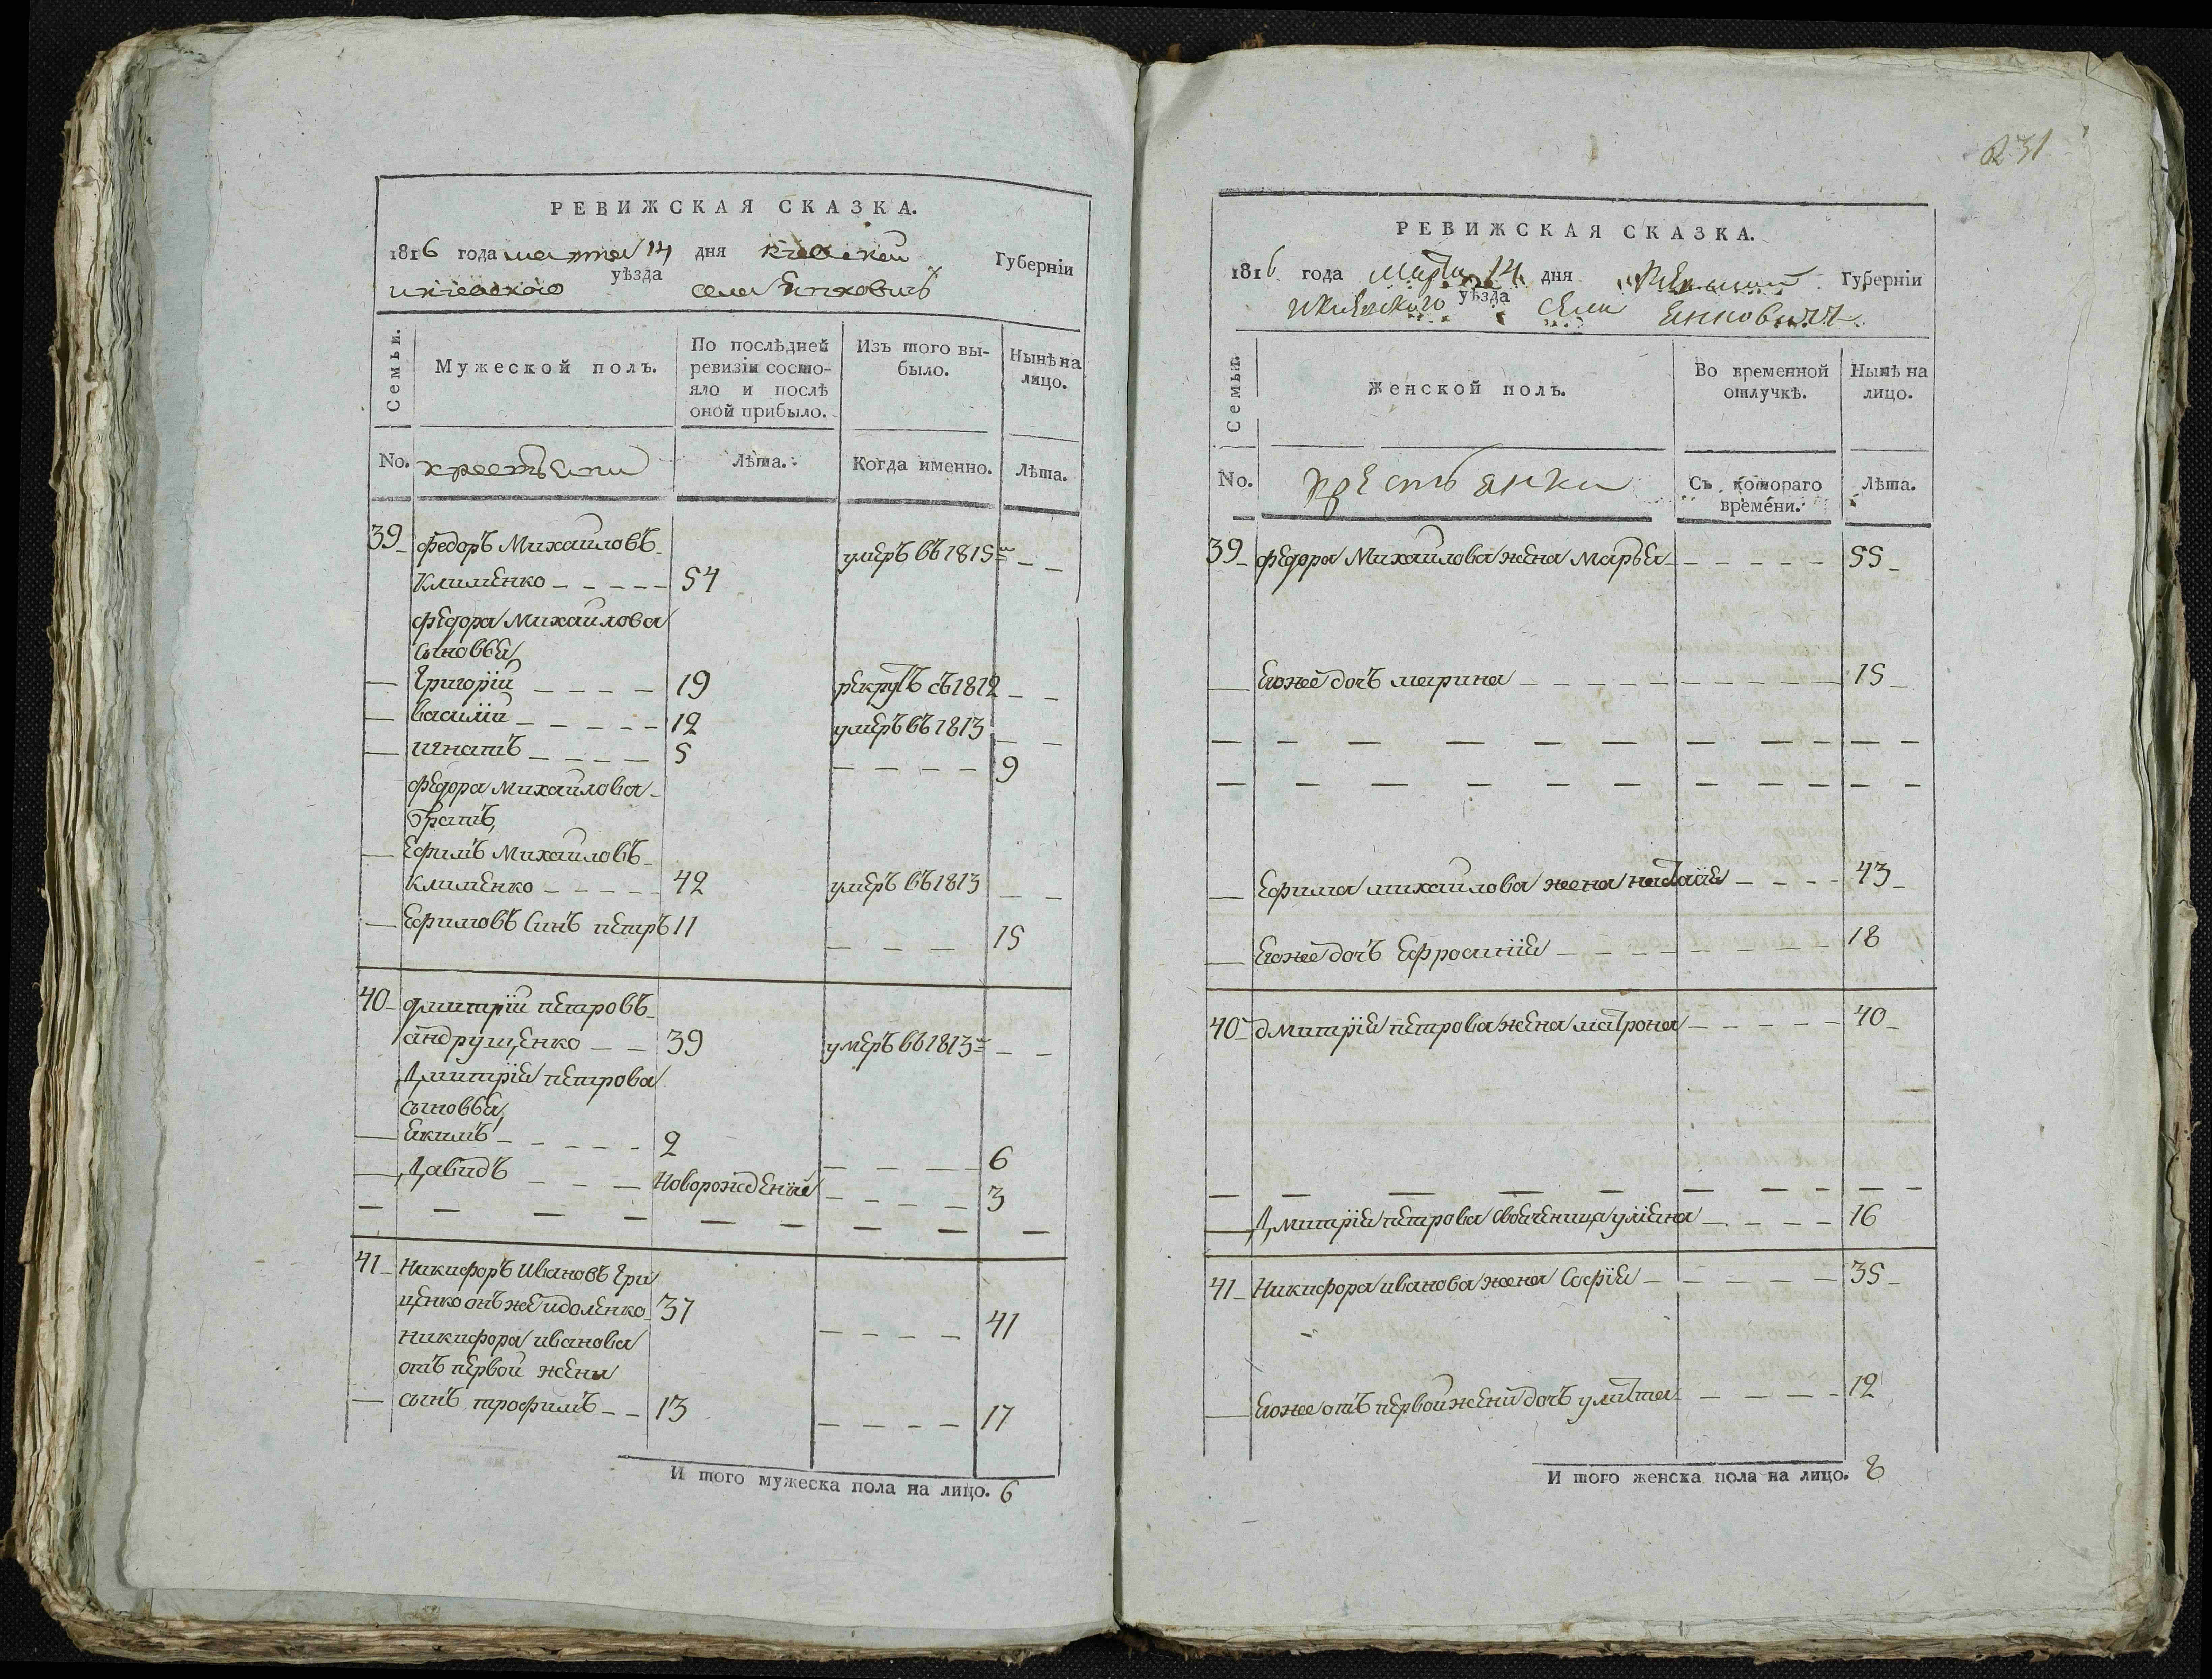 РЕВИЖСКАЯ СКАЗКА.
1816 года марта 14 дня Киевской Губерніи
и киевского уѣзда села Янковичь
Семьи.
Мужеской полъ.
По послѣдней ревизіи состояло и послѣ оной прибыло.
Изъ того выбыло.
Нынѣ на лицо.
No. крестьяни Лѣта. Когда именно. Лѣта.
39 Федоръ Михайловъ умеръ въ 1815м
Клименко 54
Федора Михайлова
сыновья
Григорій 19 рекрутъ съ 1812
василій 12 умеръ въ 1813
игнатъ 5 9
Федора Михайлова
братъ
Ефимъ Михайловъ
Клименко 42 умеръ въ 1813
Ефимовъ Синъ петръ 11 15
40 дмитрій петровъ
андрущенко 39 умеръ въ 1813м
Дмитрія петрова
сыновья
якимъ 2 6
Давидъ Новорожденые 3
41 Никифоръ Ивановъ Гри
ценко онъ же идоленко 37 41
никифора иванова
отъ первой жены
сынъ трофимъ 13 17
И того мужеска пола на лицо. 6
231
РЕВИЖСКАЯ СКАЗКА.
1816 года Марта 14 дня Киевской Губерніи
и Киевского уѣзда Села Янкович
Семьи.
Женской полъ.
Во временной отлучкѣ.
Нынѣ на лицо.
No. крестьянки Съ котораго времени. Лѣта.
39 Федора Михайлова жена марья 55
Егоже дочь марина 15
Ефима михайлова жена наталія 43
Егоже дочь Ефросинія 18
40 дмитрія петрова жена матрона 40
Дмитрія петрова своячениця уліяна 16
41 Никифора иванова жена Софія 35
Егоже отъ первой жени дочь улита 12
И того женска пола на лицо. 8